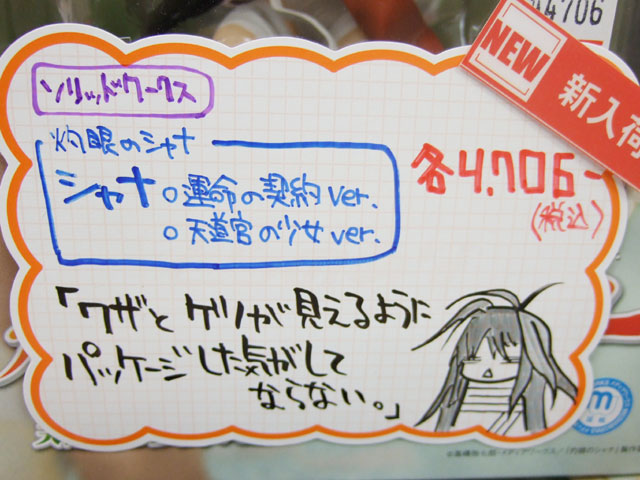 4706
NEW
新入荷
ソリッドワークス
灼眼のシャナ
シャナ○運命の契約ver.
○天道宮の少女ver.
各4,706-
(税込)
「ワザとゲリが見えるように
パッケージした気がして
ならない。」
m